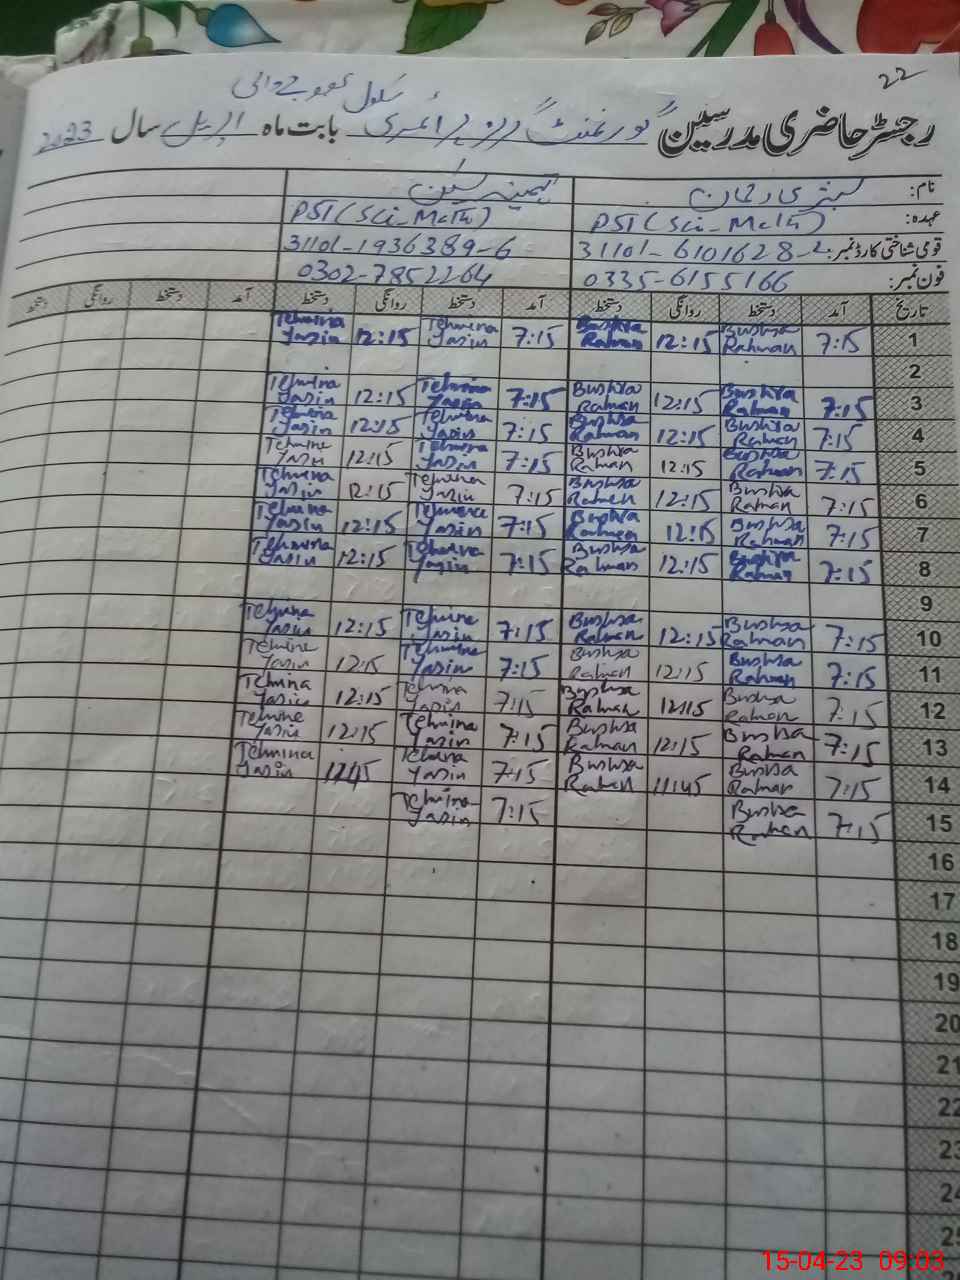 22
رجسٹر حاضری مدرسین گورنمنٹ گرلز پرائمری سکول بابت ماہ اپریل سال 2023
نام: بشریٰ رحمان تہمینہ یٰسین
عہدہ: PST (Sci-Math) PST (Sci-Math)
قومی شناختی کارڈ نمبر: 31101-6101628-2 31101-1936389-6
فون نمبر: 0335-6155166 0302-7852264
تاریخ آمد دستخط روانگی دستخط آمد دستخط روانگی دستخط آمد دستخط روانگی دستخط
1 7:15 Bushra Rahman 12:15 Bushra Rahman 7:15 Tehmina Yasin 12:15 Tehmina Yasin
2
3 7:15 Bushra Rahman 12:15 Bushra Rahman 7:15 Tehmina Yasin 12:15 Tehmina Yasin
4 7:15 Bushra Rahman 12:15 Bushra Rahman 7:15 Tehmina Yasin 12:15 Tehmina Yasin
5 7:15 Bushra Rahman 12:15 Bushra Rahman 7:15 Tehmina Yasin 12:15 Tehmina Yasin
6 7:15 Bushra Rahman 12:15 Bushra Rahman 7:15 Tehmina Yasin 12:15 Tehmina Yasin
7 7:15 Bushra Rahman 12:15 Bushra Rahman 7:15 Tehmina Yasin 12:15 Tehmina Yasin
8 7:15 Bushra Rahman 12:15 Bushra Rahman 7:15 Tehmina Yasin 12:15 Tehmina Yasin
9
10 7:15 Bushra Rahman 12:15 Bushra Rahman 7:15 Tehmina Yasin 12:15 Tehmina Yasin
11 7:15 Bushra Rahman 12:15 Bushra Rahman 7:15 Tehmina Yasin 12:15 Tehmina Yasin
12 7:15 Bushra Rahman 12:15 Bushra Rahman 7:15 Tehmina Yasin 12:15 Tehmina Yasin
13 7:15 Bushra Rahman 12:15 Bushra Rahman 7:15 Tehmina Yasin 12:15 Tehmina Yasin
14 7:15 Bushra Rahman 11:45 Bushra Rahman 7:15 Tehmina Yasin 11:45 Tehmina Yasin
15 7:15 Bushra Rahman 7:15 Tehmina Yasin
16
17
18
19
20
21
22
23
24
25
15-04-23 09:03